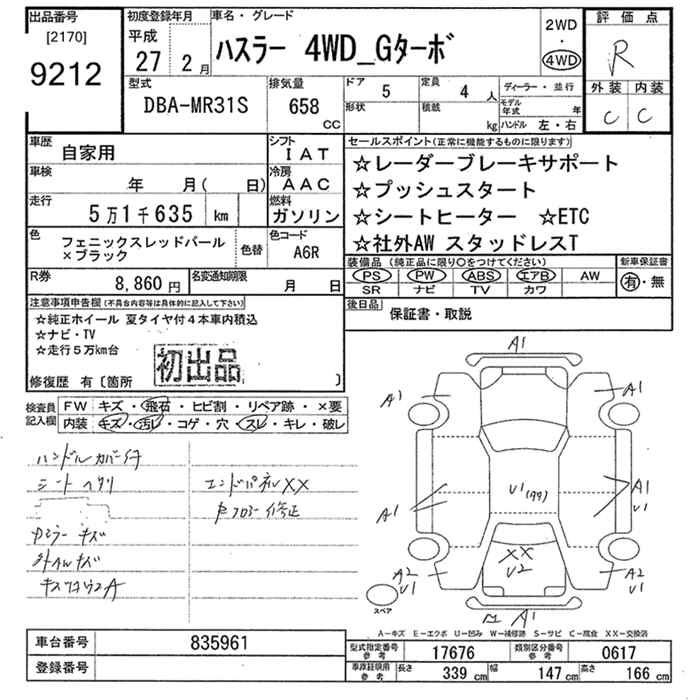 出品番号 初度登録年月 車名・グレード 評価点
[2170] 平成 2WD
9212 27 2月 ハスラー 4WD_Gターボ ・ R
4WD
型式 排気量 ドア 5 定員 4人 ディーラー・並行 外装 内装
DBA-MR31S 658 cc 形状 積載 kg モデル年式 年 C C
ハンドル 左・右
車歴 自家用 シフト IAT セールスポイント(正常に機能するものに限ります)
車検 年 月( 日) 冷房 AAC ☆レーダーブレーキサポート
☆プッシュスタート
走行 5万1千635 km 燃料 ガソリン ☆シートヒーター ☆ETC
色 フェニックスレッドパール 色替 色コード A6R ☆社外AW スタッドレスT
×ブラック
装備品(純正品に限り〇をつけてください) 新車保証書
R券 8,860円 名変通知期限 月 日 PS PW ABS エアB AW 有・無
SR ナビ TV カワ
注意事項申告欄(不具合内容等は具体的に記入して下さい) 後日品 保証書・取説
☆純正ホイール 夏タイヤ付4本車内積込
☆ナビ・TV
☆走行5万km台
初出品
修復歴 有〔箇所 〕
検査員 FW キズ・飛石・ヒビ割・リペア跡・×要
記入欄 内装 キズ・汚レ・コゲ・穴・スレ・キレ・破レ
A1
A1 A1
ハンドルカバー付
シートヘタリ エンドパネルXX
Rフロアー修正
ミラーキズ
外アルキズ
A1 U1(99) A1
U1
XX
U2
A2 A2
U1 U1
A1
スペア
A-キズ E-エクボ U-凹み W-補修跡 S-サビ C-腐食 XX-交換済
車台番号 835961 型式指定番号参考 17676 類別区分番号参考 0617
登録番号 車庫証明用参考 長さ 339cm 幅 147cm 高さ 166cm